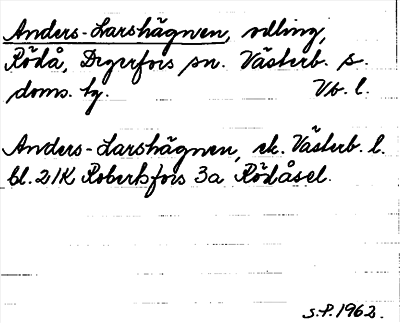 Anders-Larshägnen, odling,
Rödå, Degerfors sn. Västerb. s.
doms. tg. Vb. l.
Anders-Larshägnen, ek. Västerb. l.
bl. 21K Robertsfors 3a Rödåsel.
S.P. 1962.